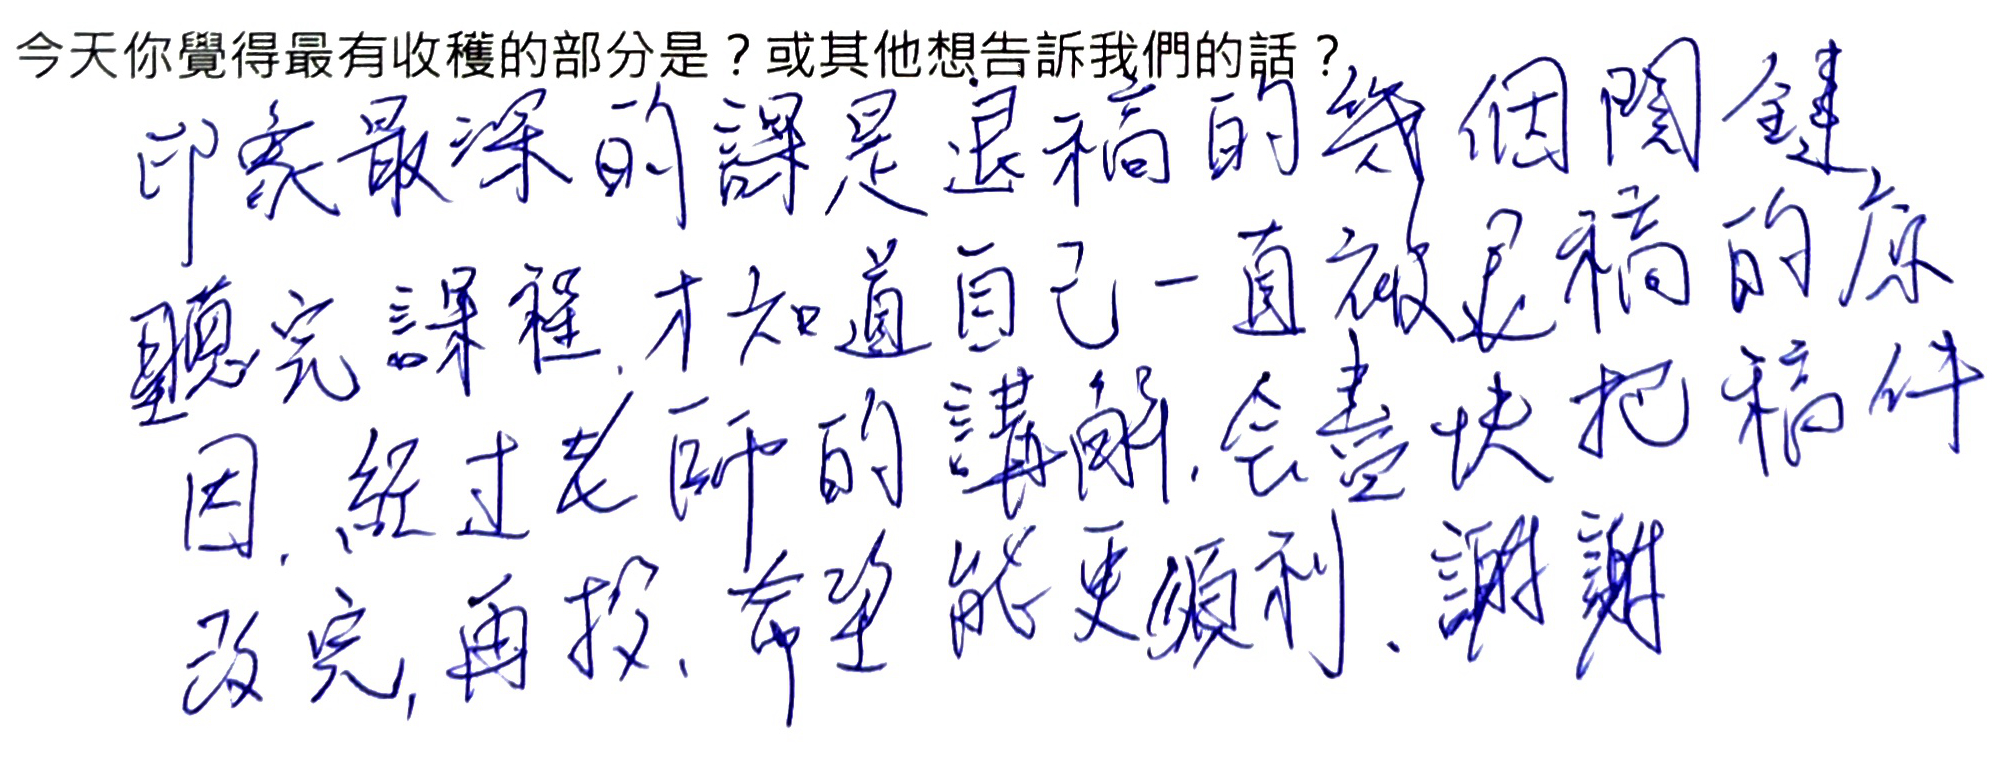 今天你覺得最有收穫的部分是？或其他想告訴我們的話？
印象最深的課是退稿的幾個關鍵,
聽完課程,才知道自己一直被退稿的原
因,經过老師的講解,会盡快把稿件
改完,再投,希望能更順利.謝謝